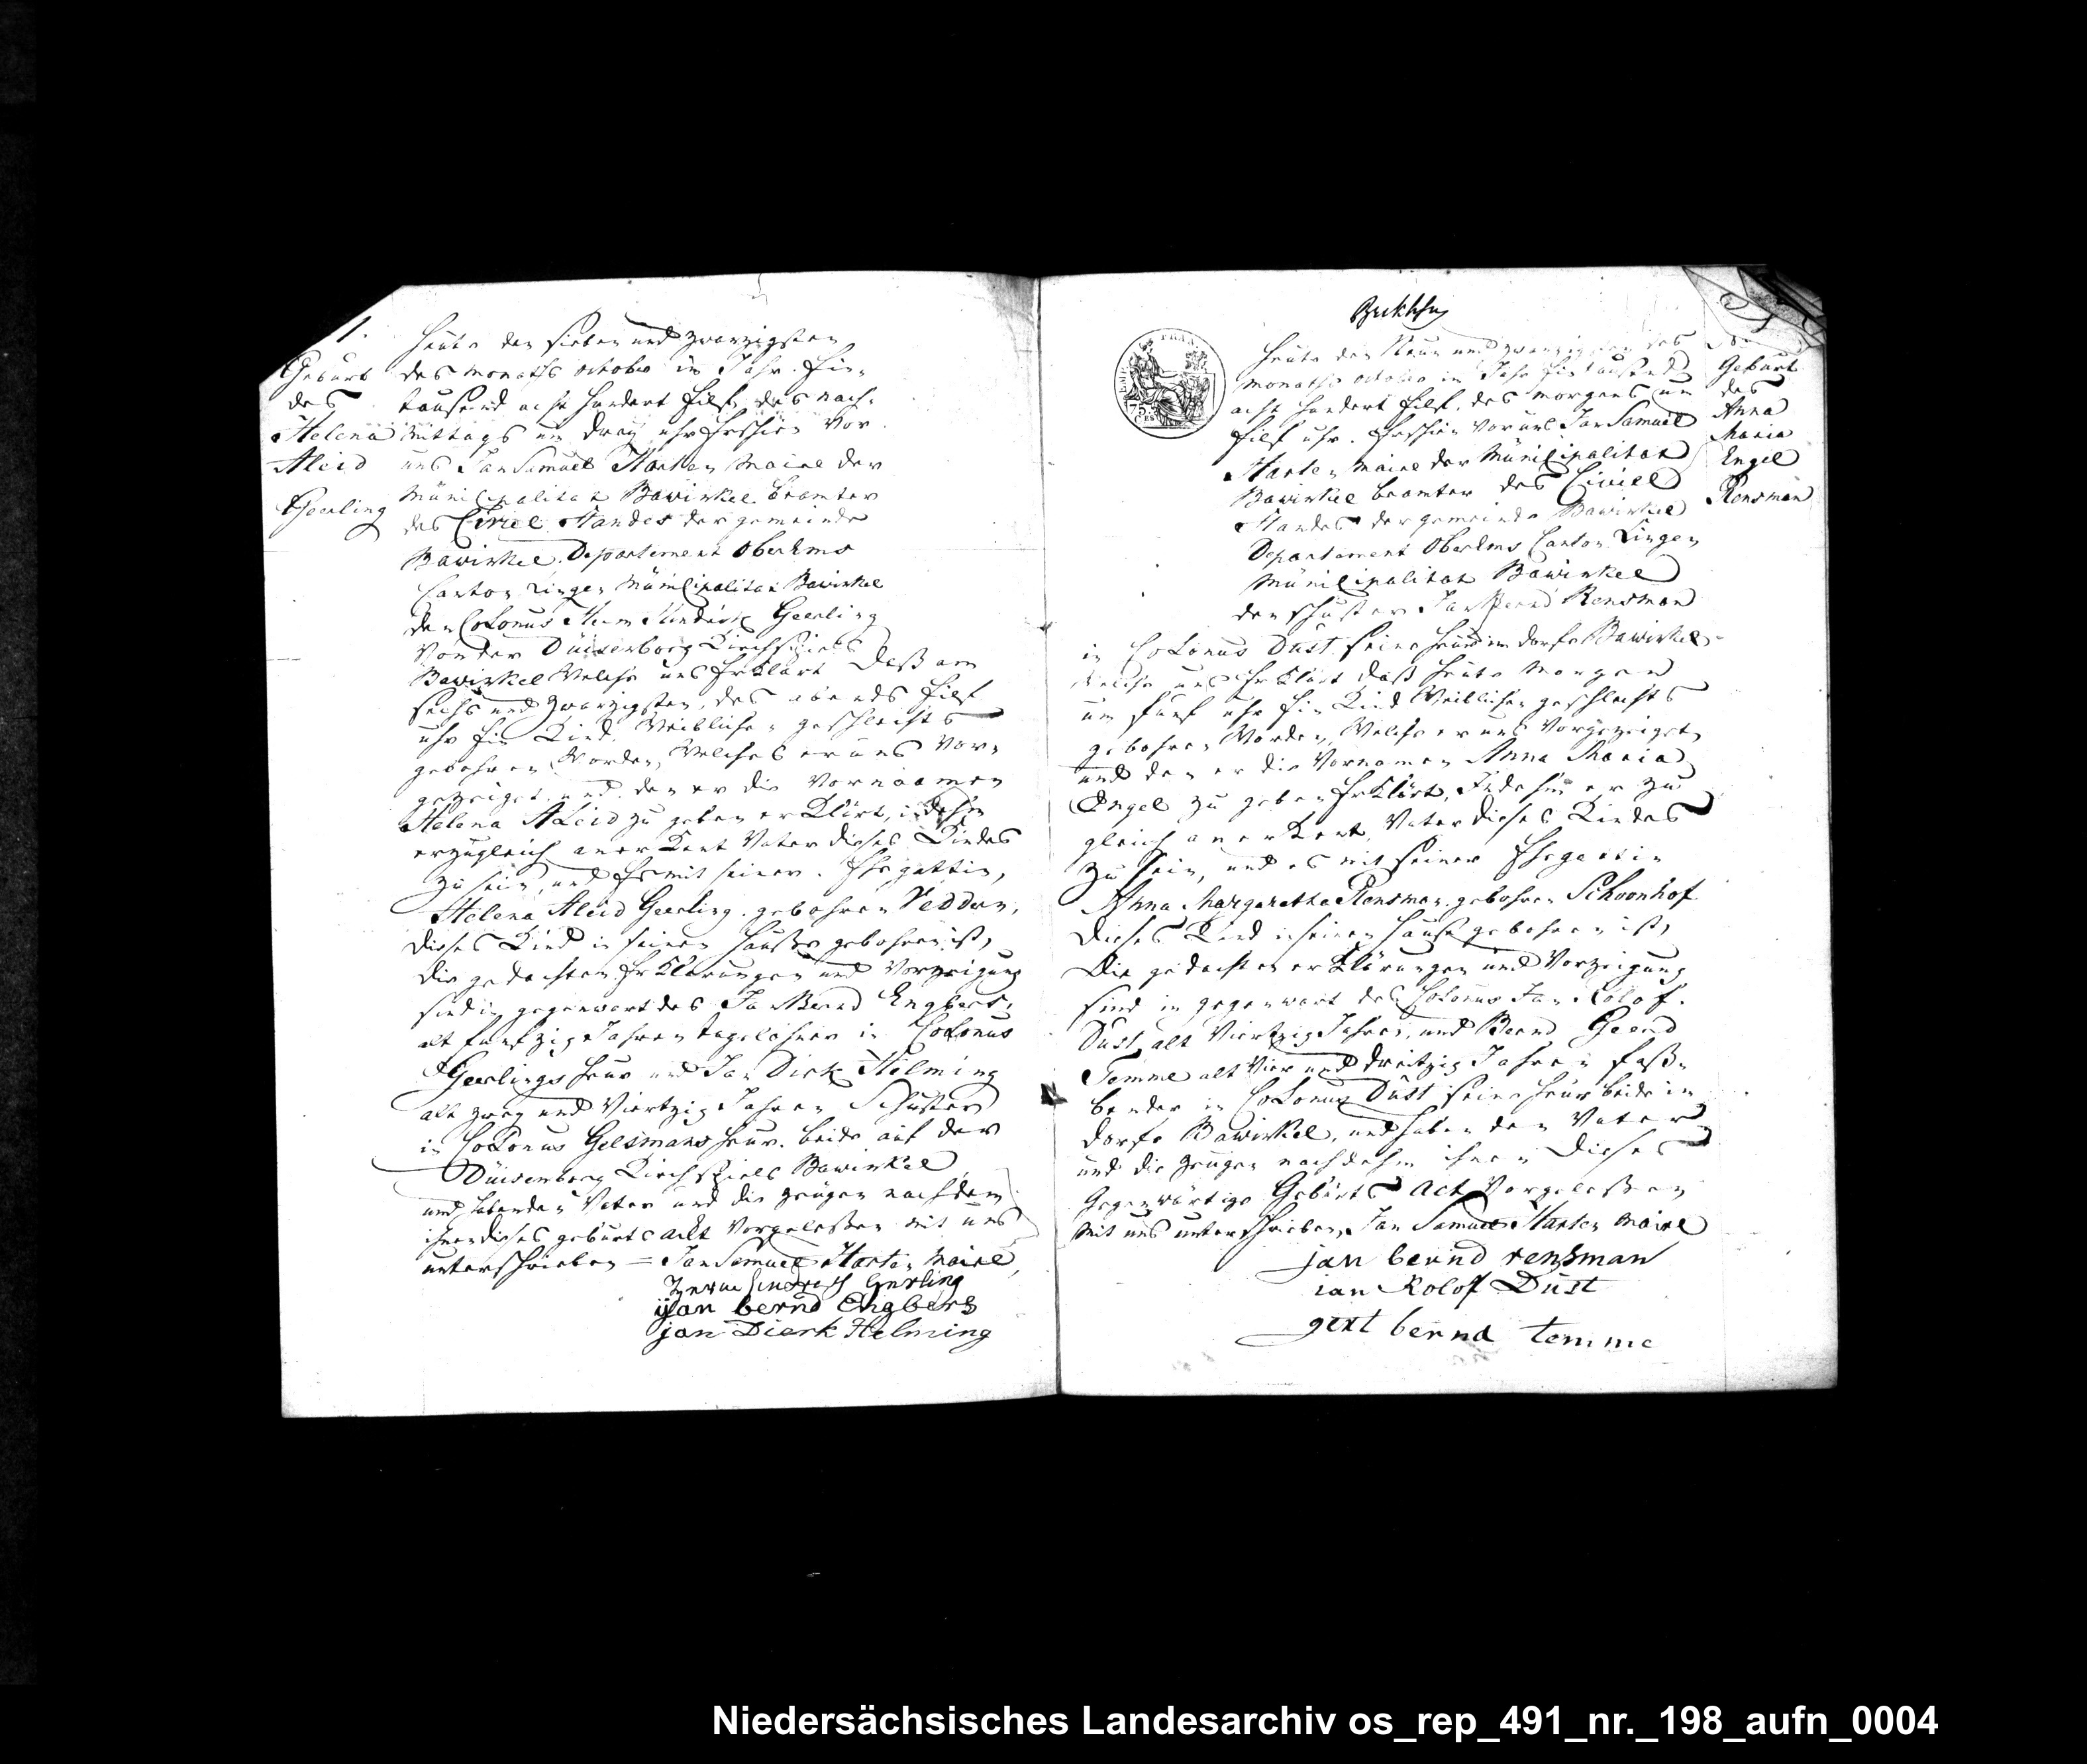 1.
Geburt
des
Helena
Aleid
Geerling
Heute den sieben und zwanzigsten
des monaths octobr im Jahr Ein-
tausend acht hundert Eilf des nach-
mittags um dreÿ uhr Erschien vor
uns Jan Samuel Harten Maire der
Münicipalitat Bawinkel beamter
des Civiel Standes der gemeinde
Bawinkel, Departement Oberems
Canton Lingen Münicipalitat Bawinkel
den Colonus Herm Hindrick Geerling
von der Düisenborg Kirchspiels
Bawinkel Welche uns Erklärt daß am
sechs und zwanzigsten, des abends Eilf
uhr Ein Kind Weiblichen geschlechts
gebohren Worden, Welches er uns vor-
gezeiget und den er die Vornaamen
Helena Aleid zu geben erklärt, indehm
er zugleich anerkent Vater dieses Kindes
zu sein, und Es mit seiner Ehegattin,
Helena Aleid Geerling gebohren Veddern,
dieses Kind in seinen Hauße gebohren ist,
die gedachten Erklärungen und Vorzeigung
sind in gegenwart des Jan Bernd Engbers,
alt funfzig Jahren tagelöhner in Colonus
Geerlings heur und Jan Dirk Helming
alt zweÿ und Viertzig Jahren Schuster
in Colonus Gelsmans heur. beide auf der
Düisenborg Kirchspiels Bawinkel
und haben den Vater und die zeugen nachdem
ihnen dieses geburts act vorgeleßen mit uns
unterschrieben = Jan Samuel Harten Maire,
Herm Hindrich Gerling
jan bernd Engbers
jan Dierk Helming
75
Heute den Neun und zwanzigsten des
monaths octobr im Jahr Ein tausend
acht hundert Eilf, des morgens um
Eilf uhr. Erschien vor uns Jan Samuel
Harten Maire der Münicipalitat
Bawinkel beamter des Civiel
Standes der gemeinde Bawinkel
Departement Oberems Canton Lingen
Münicipalitat Bawinkel
den schuster Jan Bernd Rensman
in Colonus Düst seine heur im dorfe Bawinkel
Welche uns Erklärt daß heute morgen
um funf uhr Ein Kind Weiblichen geschlechts
gebohren Worden, Welche er uns vorgezeiget,
und den er die Vornamen Anna Maria
Engel zu geben Erklärt, Indehm er zu
gleich anerkent, Vater dieses Kindes
zu sein, und es mit seiner Ehegattin
Anna Margaretha Rensman gebohren Schoonhof
dieses Kind in seinen hauße gebohren ist,
Die gedachten erklärungen und Vorzeigung
sind in gegenwart des Colonus Jan Rolof
Düst alt Viertzig Jahren, und Bernd Geerd
Temme alt Vier und dreitzig Jahren faß-
bender in Colonus Düst seine heur beide in
dorfe Bawinkel, und haben den Vater
und die zeugen nachdehm ihnen dieses
Gegenwärtige Geburts Act Vorgeleßen
mit uns unterschrieben, Jan Samuel Harten Maire
jan bernd rensman
ian Rolof Düst
gert bernd temme
Geburt
des
Anna
Maria
Engel
Rensman
Niedersächsisches Landesarchiv os_rep_491_nr._198_aufn_0004